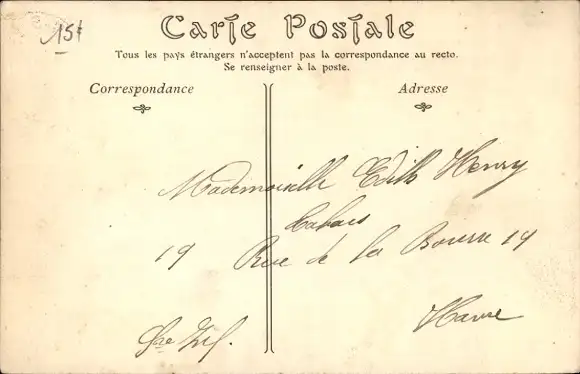 15f
Carte Postale
Tous les pays étrangers n'acceptent pas la correspondance au recto.
Se renseigner à la poste.
Correspondance
Adresse
Mademoiselle Edith Henry
19 Rue de la Bourse 19
Havre
Sre Inf.